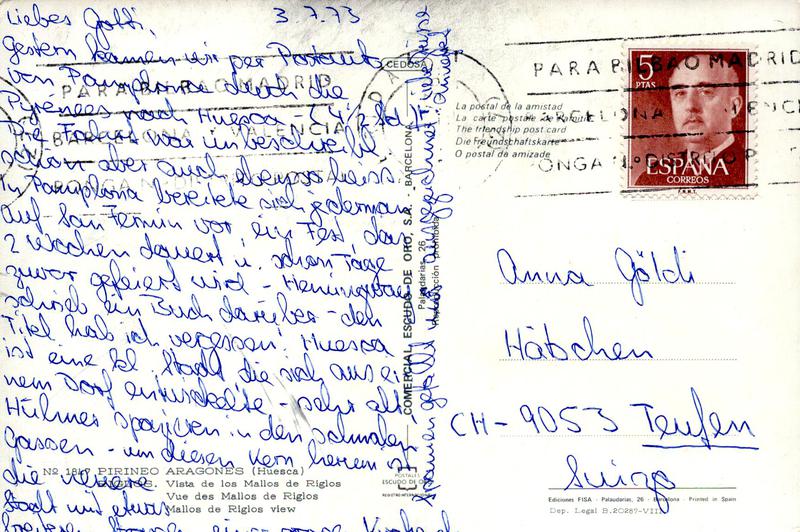 3.7.73
Liebes Götti,
Gestern kamen wir per Postauto
von Pamplona durch die
Pyrénées nach Huesca - (4 1/2 Std.)
Die Fahrt war unbeschreibl.
schön aber auch ebenso heiss.
In Pamplona bereitete sich jederman
auf San Fermin vor, ein Fest, das
2 Wochen dauert u. schon Tage
zuvor gefeiert wird - Hemingway
schrieb ein Buch darüber - den
Titel hab ich vergessen. Huesca
ist eine kl. Stadt die sich aus ei-
nem Dorf entwickelte - sehr alt
Hühner spazieren in den schmalen
Gassen - um diesen Kern herum ist
die neuere
Stadt mit etwas
Spanien gefällt uns ausgezeichnet! Liebe Grüsse
No. 1817 PIRINEO ARAGONES (Huesca)
RIGLOS. Vista de los Mallos de Riglos
Vue des Mallos de Riglos
Mallos de Riglos view
CEDOSA
COMERCIAL ESCUDO DE ORO, S.A. - BARCELONA
Palaudarias, 26
Reproducción prohibida
POSTALES
ESCUDO DE ORO
REGISTRO INTERNACIONAL
La postal de la amistad
La carte postale de l'amitié
The friendship post card
Die Freundschaftskarte
O postal de amizade
PARA BILBAO MADRID
BARCELONA VALENCIA
PONGA N.º DISTRITO P
PARA BILBAO MADRID
BARCELONA VALENCIA
5
PTAS
ESPAÑA
CORREOS
F.N.M.T.
Anna Göldi
Häbchen
CH-9053 Teufen
Suiza
Ediciones FISA - Palaudarias, 26 - Barcelona - Printed in Spain
Dep. Legal B. 20287-VIII